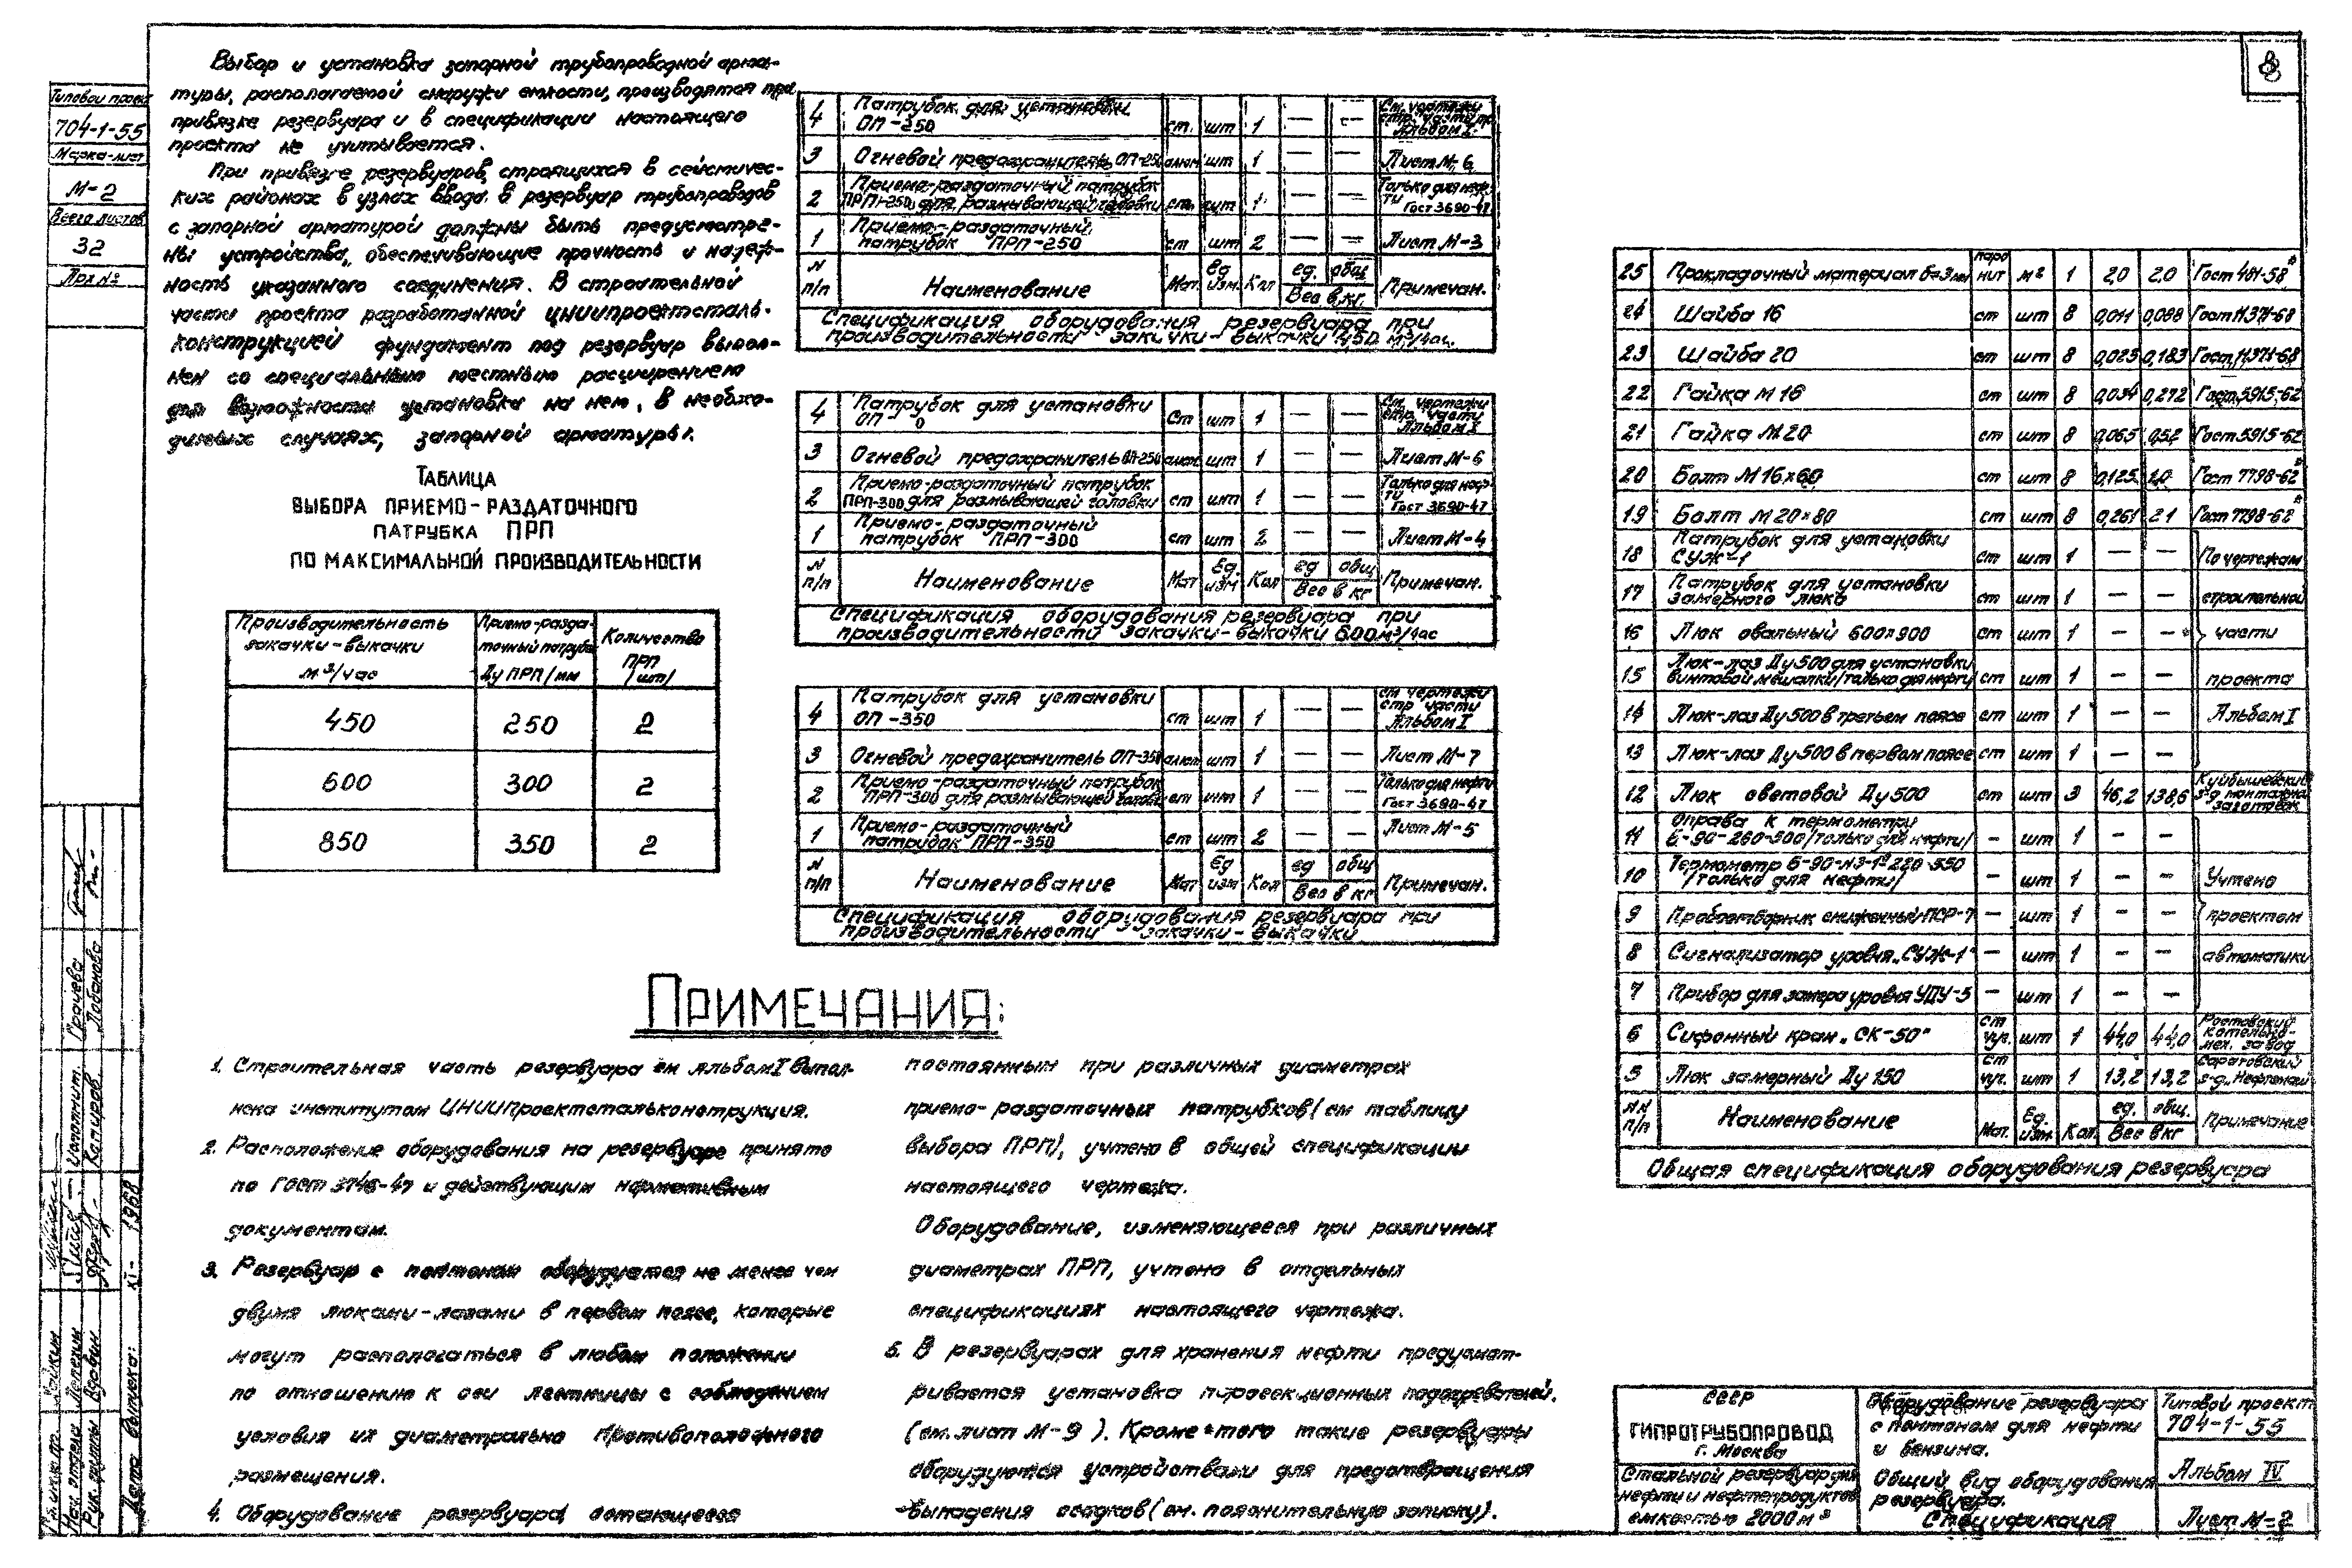 8
Типовой проект
704-1-55
Марка-лист
М-2
Всего листов
32
Арх №
Выбор и установка запорной трубопроводной арма-
туры, располагаемой снаружи емкости, производятся при
привязке резервуара и в спецификации настоящего
проекта не учитывается.
При привязке резервуаров, строящихся в сейсмичес-
ких районах в узлах ввода в резервуар трубопроводов
с запорной арматурой должны быть предусмотре-
ны устройства, обеспечивающие прочность и надеж-
ность указанного соединения. В строительной
части проекта разработанной ЦНИИпроектсталь-
конструкцией фундамент под резервуар выпол-
нен со специальным местным расширением
для возможности установки на нем, в необхо-
димых случаях, запорной арматуры.
Таблица
выбора приемо-раздаточного
патрубка ПРП
по максимальной производительности
Производительность закачки-выкачки м³/час | Приемо-разда-точный патрубок Ду ПРП/мм | Количество ПРП /шт/
450 250 2
600 300 2
850 350 2
4 Патрубок для установки ОП-250 ст. шт 1 — — См. чертежи стр. части пр. Альбом I
3 Огневой предохранитель ОП-250 алюм шт 1 — — Лист М-6
2 Приемо-раздаточный патрубок ПРП-250 для размывающей головки ст. шт 1 — — Только для неф-ти Гост 3690-47
1 Приемо-раздаточный патрубок ПРП-250 ст шт 2 — — Лист М-3
N п/п Наименование Мат. Ед. изм. Кол ед. общ Вес в кг. Примечан.
Спецификация оборудования резервуара при
производительности закачки-выкачки 450 м³/час.
4 Патрубок для установки ОП- 0 Ст шт 1 — — См. чертежи стр. части Альбом I
3 Огневой предохранитель ОП-250 алюм шт 1 — — Лист М-6
2 Приемо-раздаточный патрубок ПРП-300 для размывающей головки ст шт 1 — — Только для неф-ти Гост 3690-47
1 Приемо-раздаточный патрубок ПРП-300 ст шт 2 — — Лист М-4
N п/п Наименование Мат Ед. изм Кол ед общ Вес в кг Примечан.
Спецификация оборудования резервуара при
производительности закачки-выкачки 600 м³/час
4 Патрубок для установки ОП-350 ст шт 1 — — см чертежи стр части Альбом I
3 Огневой предохранитель ОП-350 алюм шт 1 — — Лист М-7
2 Приемо-раздаточный патрубок ПРП-300 для размывающей головки ст шт 1 — — Только для нефти Гост 3690-47
1 Приемо-раздаточный патрубок ПРП-350 ст шт 2 — — Лист М-5
N п/п Наименование Мат Ед изм Кол ед общ Вес в кг Примечан.
Спецификация оборудования резервуара при
производительности закачки-выкачки
25 Прокладочный материал б=3мм паронит м² 1 2,0 2,0 Гост 481-58*
24 Шайба 16 ст шт 8 0,011 0,088 Гост 11371-68
23 Шайба 20 ст шт 8 0,023 0,183 Гост 11371-68
22 Гайка М 16 ст шт 8 0,034 0,272 Гост 5915-62
21 Гайка М 20 ст шт 8 0,065 0,52 Гост 5915-62
20 Болт М 16×60 ст шт 8 0,125 1,0 Гост 7798-62*
19 Болт М 20×80 ст шт 8 0,261 2,1 Гост 7798-62*
18 Патрубок для установки СУЖ-1 ст шт 1 — — По чертежам
17 Патрубок для установки замерного люка ст шт 1 — — строительной
16 Люк овальный 600×900 ст шт 1 — — части
15 Люк-лаз Ду 500 для установки винтовой мешалки /только для нефти/ ст шт 1 — — проекта
14 Люк-лаз Ду 500 в третьем поясе ст шт 1 — — Альбом I
13 Люк-лаз Ду 500 в первом поясе ст шт 1 — —
12 Люк световой Ду 500 ст шт 3 46,2 138,6 Куйбышевский з-д монтажных заготовок
11 Оправа к термометру Б-90-260-500 /только для нефти/ — шт 1 — —
10 Термометр Б-90-№3-1°-220-550 /только для нефти/ — шт 1 — — Учтено
9 Пробоотборник сниженный ПСР-7 — шт 1 — — проектом
8 Сигнализатор уровня „СУЖ-1" — шт 1 — — автоматики
7 Прибор для замера уровня УДУ-5 — шт 1 — —
6 Сифонный кран „СК-50" ст чуг. шт 1 44,0 44,0 Ростовский котельно-мех. завод
5 Люк замерный Ду 150 ст чуг. шт 1 13,2 13,2 Саратовский з-д „Нефтемаш
NN п/п Наименование Мат. Ед. изм. Кол. ед. общ. Вес в кг Примечание
Общая спецификация оборудования резервуара
Примечания:
1. Строительная часть резервуара см Альбом I выпол-
нена институтом ЦНИИПроектстальконструкция.
2. Расположение оборудования на резервуаре принято
по Гост 3746-47 и действующим нормативным
документам.
3. Резервуар с понтоном оборудуется не менее чем
двумя люками-лазами в первом поясе, которые
могут располагаться в любом положении
по отношению к оси лестницы с соблюдением
условия их диаметрально противоположного
размещения.
4. Оборудование резервуара, остающееся
постоянным при различных диаметрах
приемо-раздаточных патрубков (см таблицу
выбора ПРП), учтено в общей спецификации
настоящего чертежа.
Оборудование, изменяющееся при различных
диаметрах ПРП, учтено в отдельных
спецификациях настоящего чертежа.
5. В резервуарах для хранения нефти предусмат-
ривается установка паросекционных подогревателей.
(см. лист М-9). Кроме того такие резервуары
оборудуются устройствами для предотвращения
выпадения осадков (см. пояснительную записку).
СССР
ГИПРОТРУБОПРОВОД
г. Москва
Стальной резервуар для
нефти и нефтепродуктов
емкостью 2000 м³
Оборудование резервуара
с понтоном для нефти
и бензина.
Общий вид оборудования
резервуара.
Спецификация
Типовой проект
704-1-55
Альбом IV
Лист М-2
Гл. инж. пр.
Нач. отдела Лепехин
Рук. группы Вдовин
Исполнит. Грачева
Копиров. Лобанова
Дата выпуска: XI- 1968